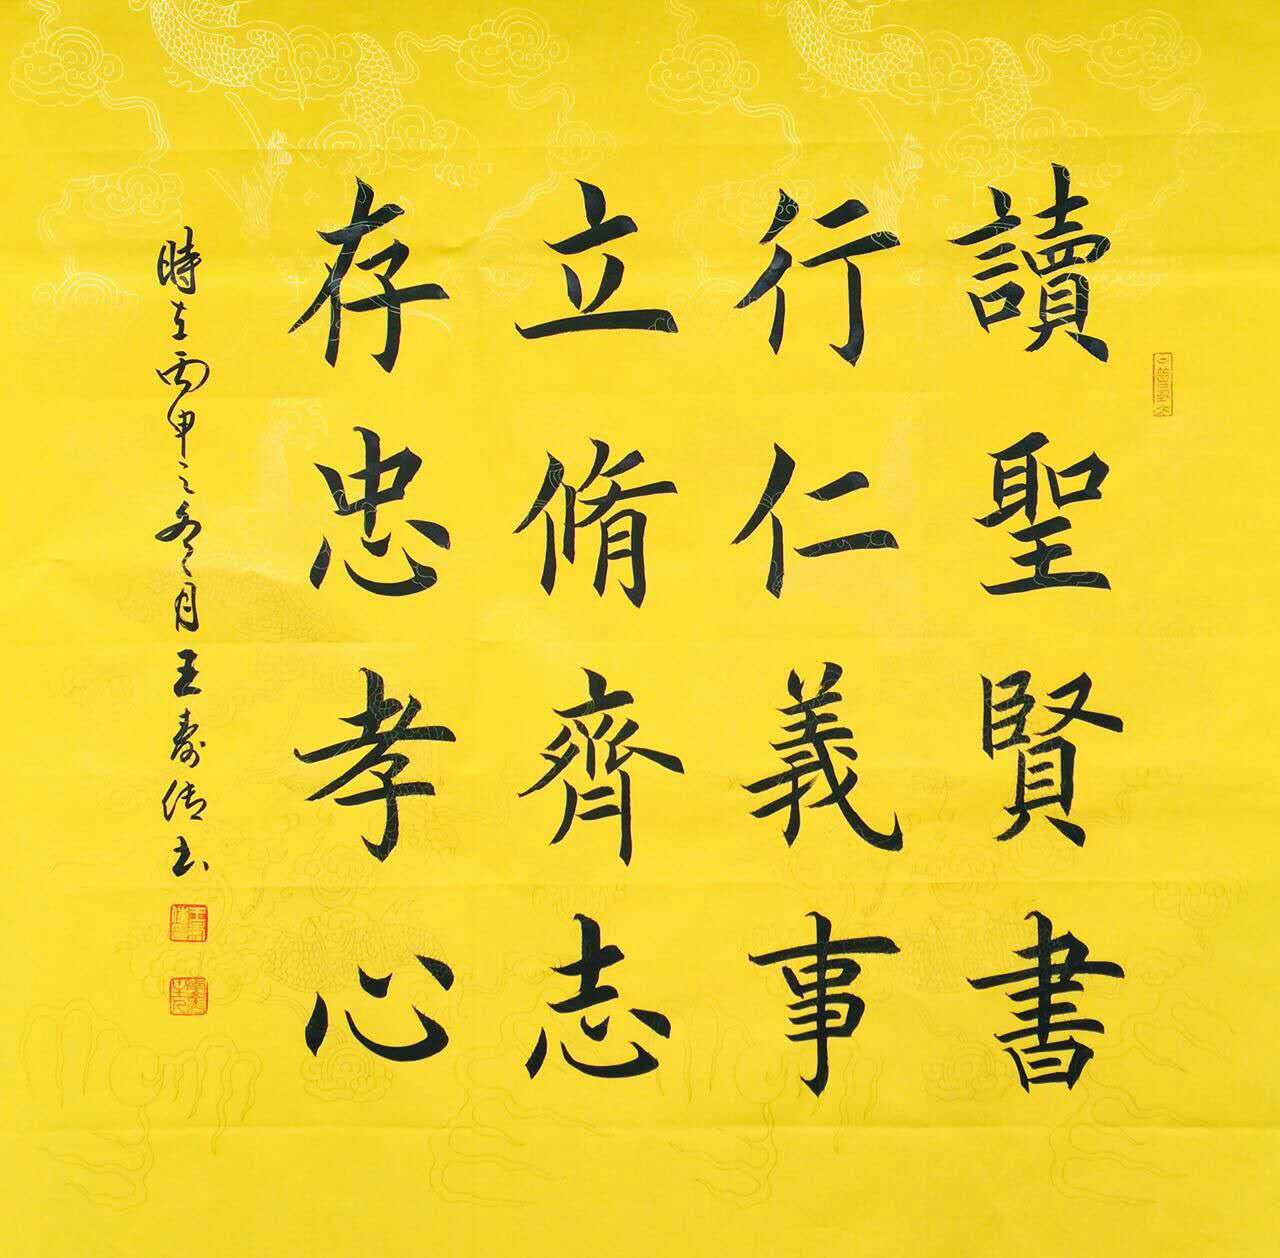 讀聖賢書
行仁義事
立脩齊志
存忠孝心
時在丙申之冬月王壽书